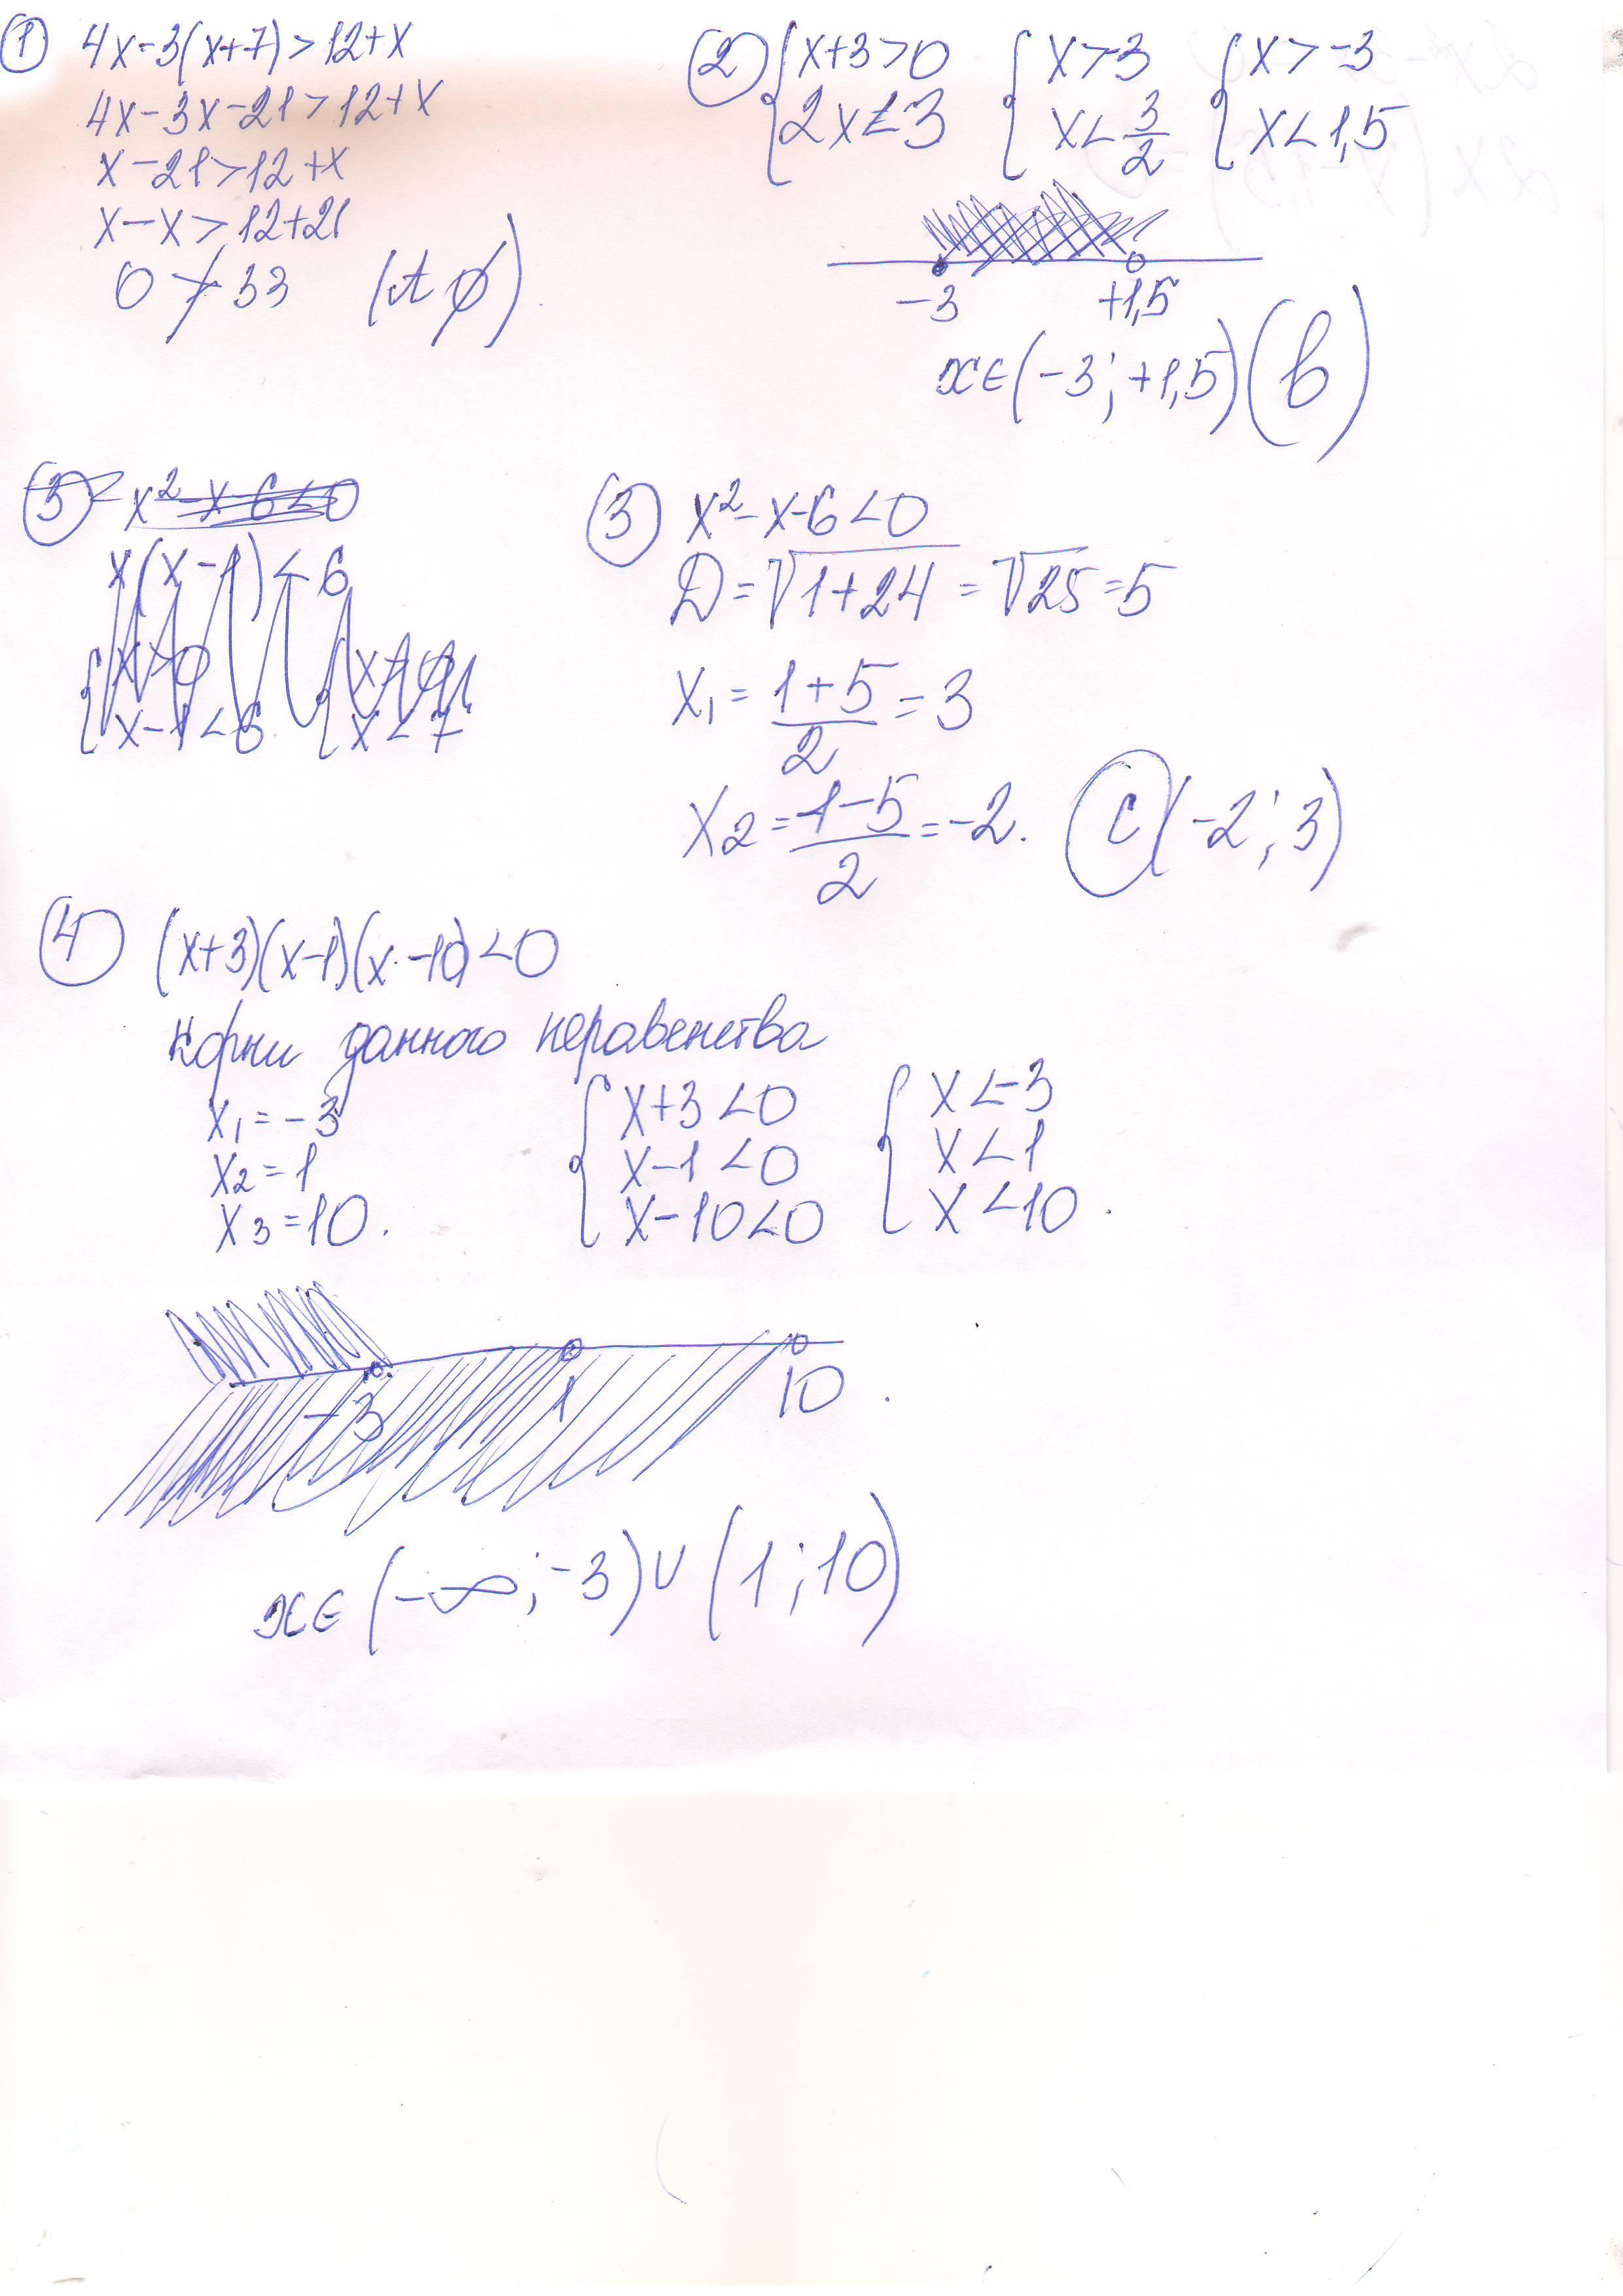 ① 4x-3(x+7)>12+x
4x-3x-21>12+x
x-21>12+x
x-x>12+21
0≯33 (A ∅)
② { x+3>0 { x>-3 { x>-3
2x<3 x<3/2 x<1,5
-3 +1,5
x∈(-3;+1,5) (b)
③ x²-x-6<0
x(x-1)<6
x>0 x>0
x-1<6 x<7
③ x²-x-6<0
D=√1+24=√25=5
x₁=(1+5)/2=3
x₂=(1-5)/2=-2. C (-2;3)
④ (x+3)(x-1)(x-10)<0
Корни данного неравенства
x₁=-3 { x+3<0 { x<-3
x₂=1 x-1<0 x<1
x₃=10. x-10<0 x<10.
-3 1 10.
x∈(-∞;-3)∪(1;10)